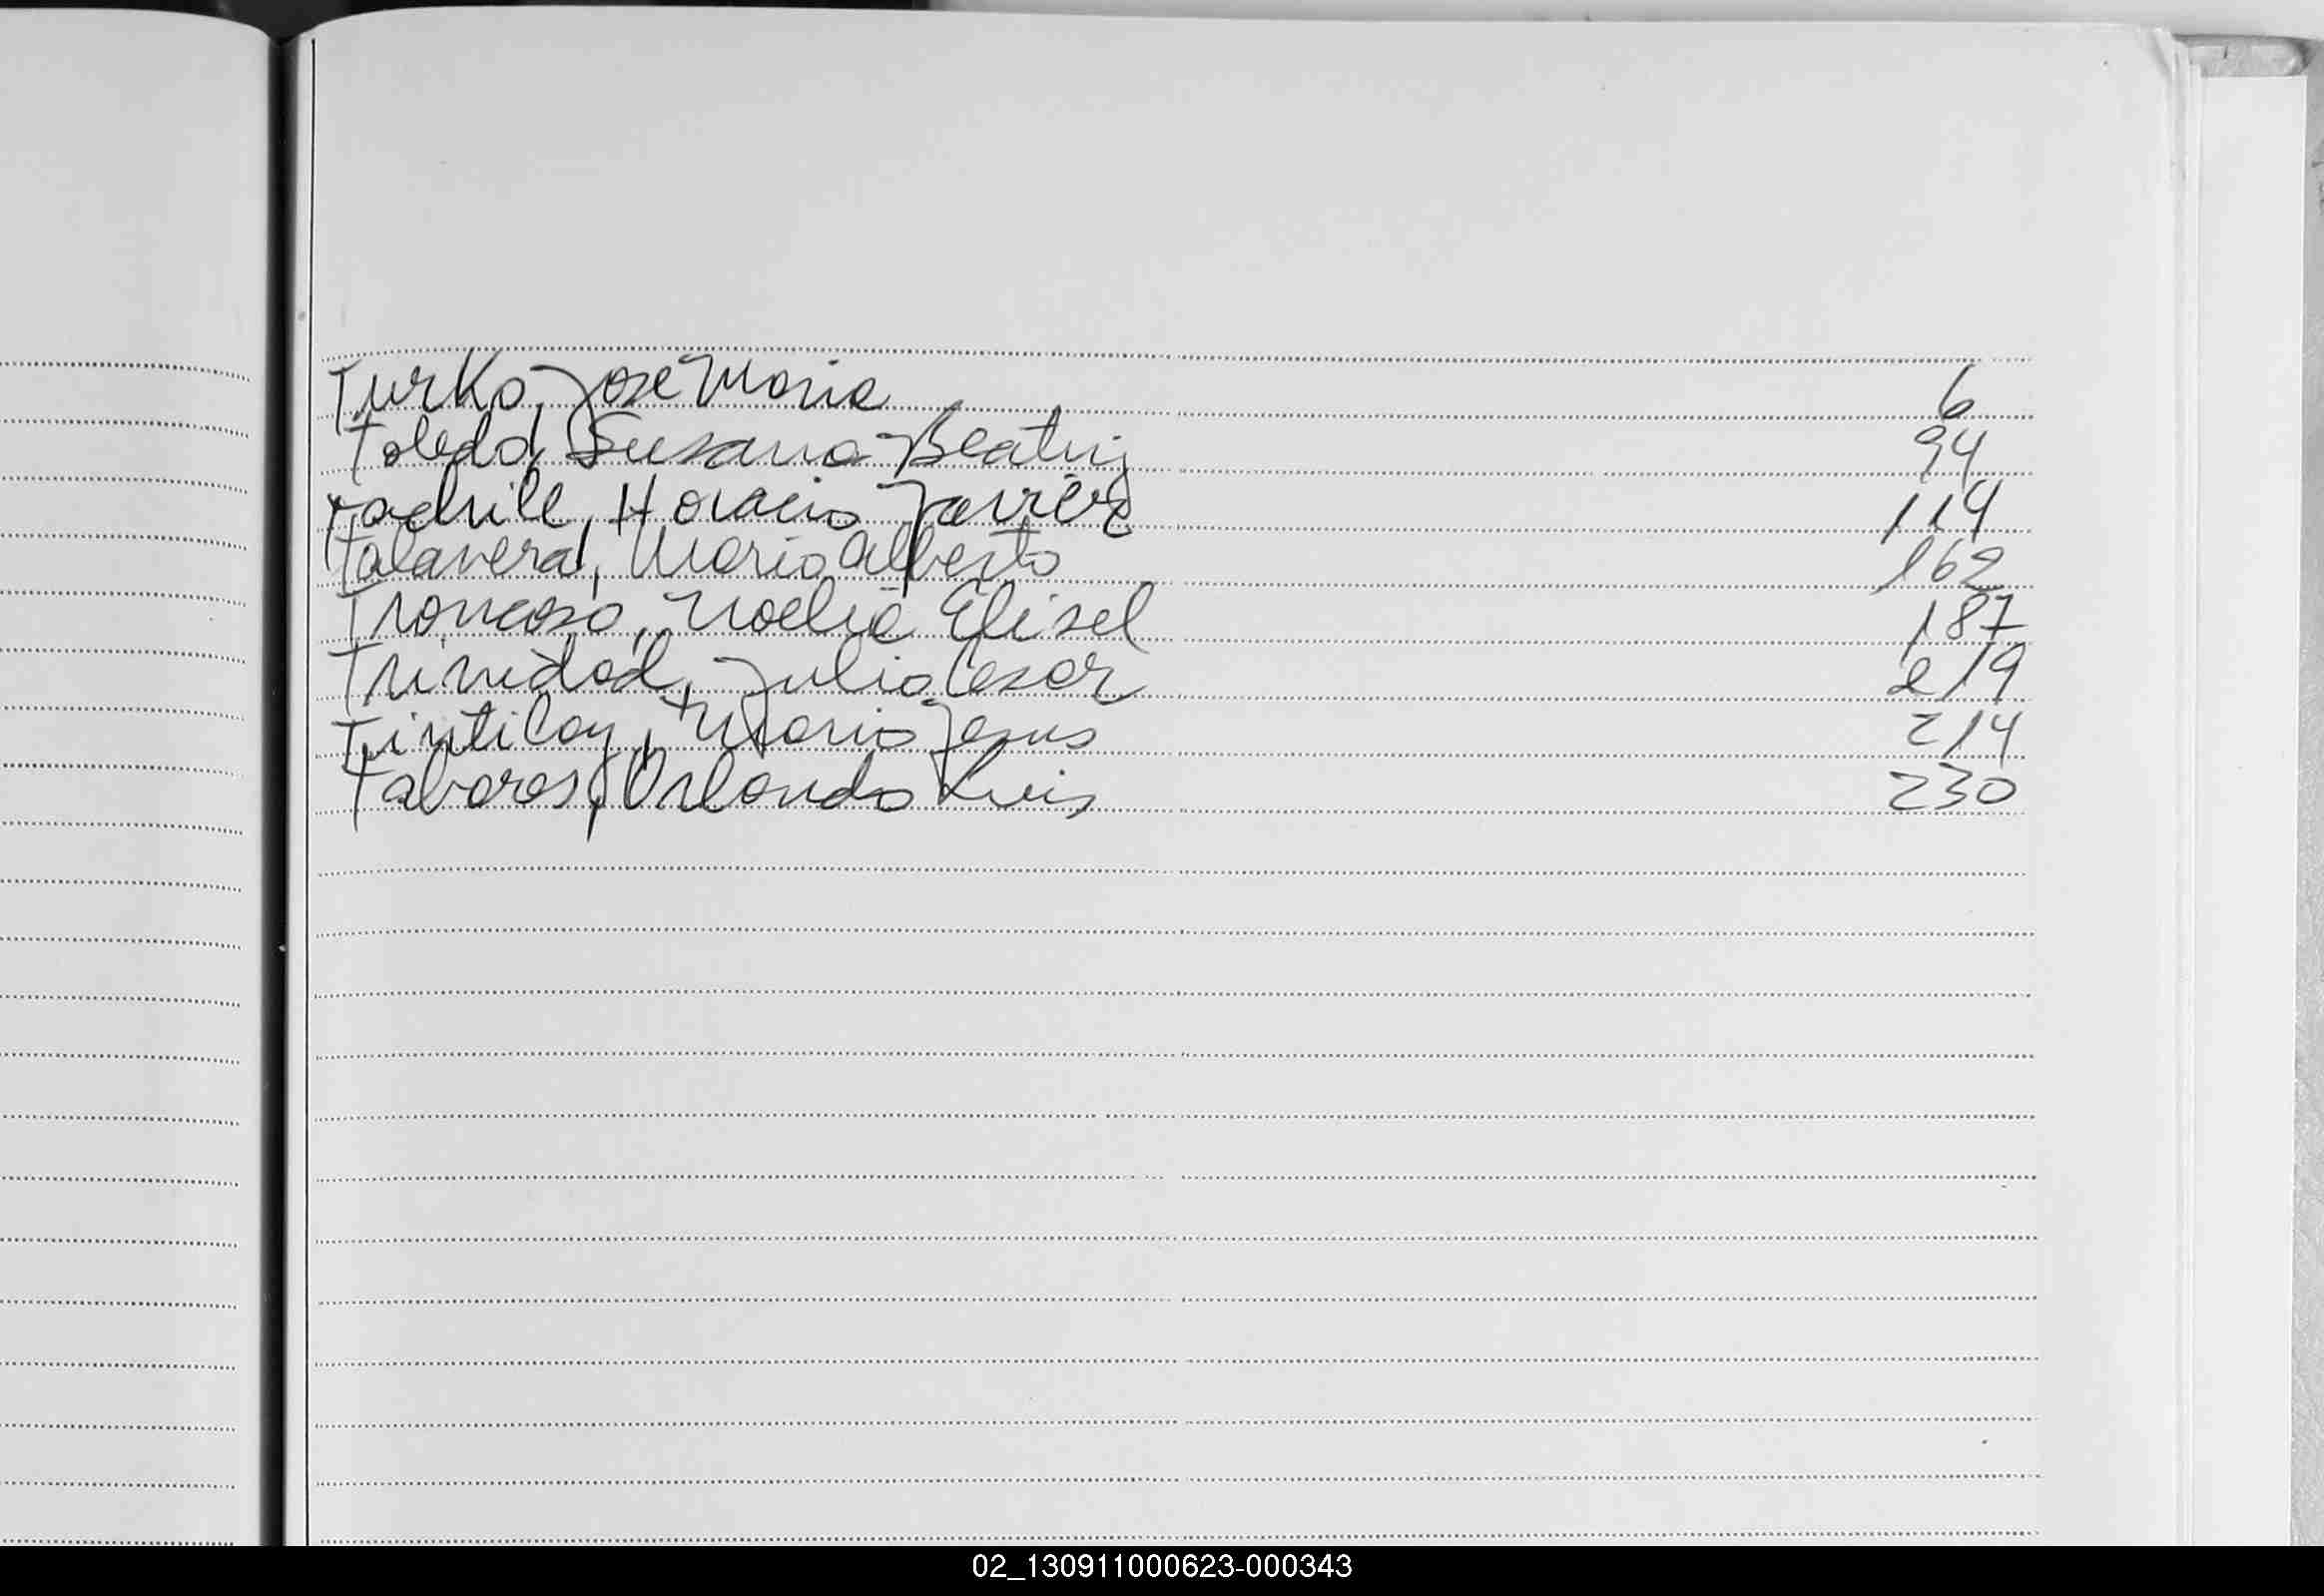 Turko, Jose Maria 6
Toledo, Susana Beatriz 94
Horacio Javier 114
Talavera, Mario Alberto 162
Troncoso, Noelia Elisel 187
Trinidad, Julio Cesar 219
Tintilay, Mario Jesus 214
Tabares, Orlando Luis 230
02_130911000623-000343